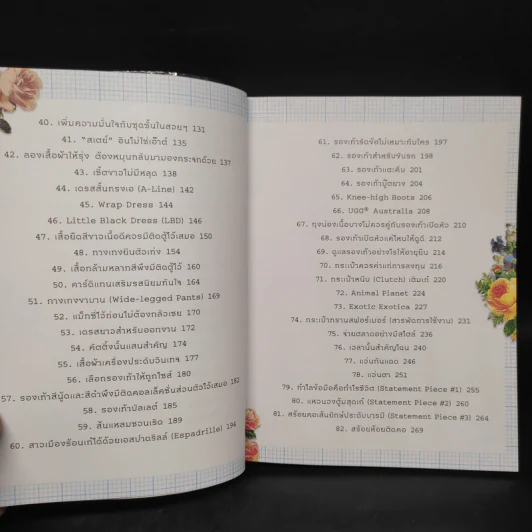 40. เพิ่มความมั่นใจกับชุดชั้นในสวยๆ 131
41. "สเตย์" อันไม่ใช่เอ๊าต์ 135
42. ลองเสื้อผ้าให้รุ่ง ต้องหมุนกลับมามองกระจกด้วย 137
43. เชิ้ตขาวไม่มีหลุด 138
44. เดรสสั้นทรงเอ (A-Line) 142
45. Wrap Dress 144
46. Little Black Dress (LBD) 146
47. เสื้อยืดสีขาวเนื้อดีควรมีติดตู้ไว้เสมอ 150
48. กางเกงยีนตัวเก่ง 154
49. เสื้อกล้ามหลากสีพึงมีติดตู้ไว้ 160
50. คาร์ดิแกนเสริมรสนิยมกันใจ 164
51. กางเกงขาบาน (Wide-legged Pants) 169
52. แม็กซี่ไว้ก่อนไม่ต้องกลัวเชย 170
53. เดรสยาวสำหรับออกงาน 172
54. คัตติ้งนั้นแสนสำคัญ 174
55. เสื้อผ้าเครื่องประดับวินเทจ 177
56. เลือกรองเท้าให้ถูกไซส์ 180
57. รองเท้าสีนู้ดและสีดำพึงมีติดคอลเล็คชั่นส่วนตัวไว้เสมอ 182
58. รองเท้าบัลเลต์ 185
59. ส้นแหลมชวนเริด 189
60. สาวเมืองร้อนเก๋ได้ด้วยเอสปาดริลล์ (Espadrille) 194
61. รองเท้ารัดข้อไม่เหมาะกับใคร 197
62. รองเท้าสำหรับขับรถ 198
63. รองเท้าแตะคีบ 201
64. รองเท้าบู๊ตยาง 204
65. Knee-high Boots 206
66. UGG® Australia 208
67. ถุงน่องเนื้อบางไม่ควรคู่กับรองเท้าเปิดหัว 210
68. รองเท้าเปิดหัวแค่ไหนให้ดูดี 212
69. ดูแลรองเท้าอย่างไรให้อายุยืน 214
70. กระเป๋าควรค่าแก่การลงทุน 216
71. กระเป๋าหนีบ (Clutch) เติมเก๋ 220
72. Animal Planet 224
73. Exotic Exotica 227
74. กระเป๋าทรานสฟอร์เมอร์ (สารพัดการใช้งาน) 231
75. จ่ายตลาดอย่างมีสไตล์ 236
76. เวลานั้นสำคัญไฉน 240
77. แว่นกันแดด 246
78. แว่นตา 251
79. กำไลข้อมือคือกำไรชีวิต (Statement Piece #1) 255
80. แหวนวงตู้มสุดเก๋ (Statement Piece #2) 260
81. สร้อยคอเส้นยักษ์ประจำบารมี (Statement Piece #3) 264
82. สร้อยห้อยติดคอ 269